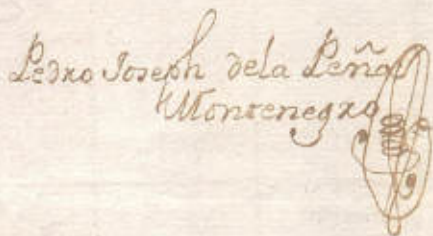 Pedro Joseph dela Peña
Montenegro